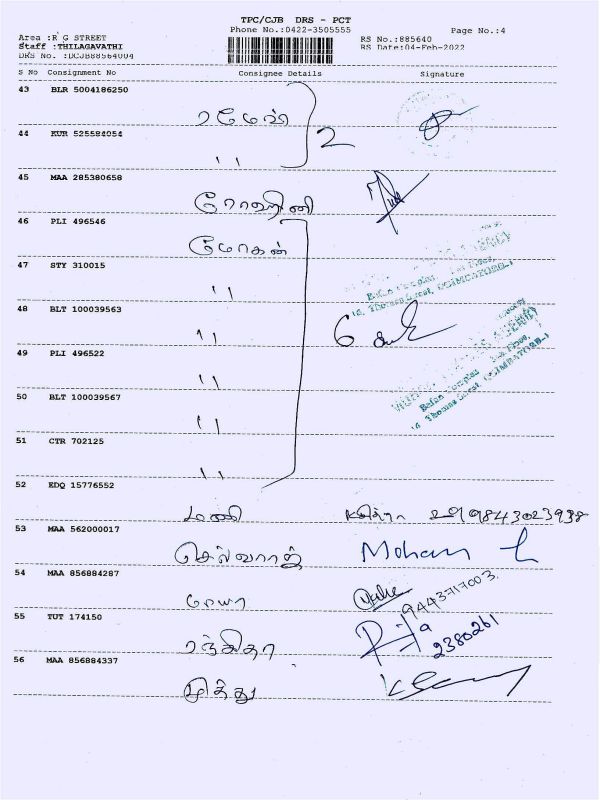 TPC/CJB DRS - PCT
Phone No.:0422-3505555
Page No.:4
Area :R G STREET
RS No.:885640
Staff :THILAGAVATHI
RS Date:04-Feb-2022
DRS No. :DCJB88564004
S No Consignment No Consignee Details Signature
43 BLR 5004186250
ரமேஷ்
44 KUR 525584054
2
"
45 MAA 285380658
ரோஹினி
46 PLI 496546
மோகன்
47 STY 310015
"
48 BLT 100039563
" 6
49 PLI 496522
"
50 BLT 100039567
"
51 CTR 702125
"
52 EDQ 15776552
மணி 9843023938
53 MAA 562000017
செல்வராஜ் Mohan
54 MAA 856884287
9443717003
55 TUT 174150
Raja
2380261
ரஞ்சிதா
56 MAA 856884337
முத்து